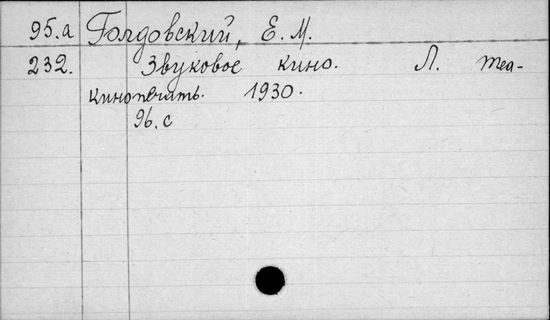 95.а Голдовский, Е. М.
232. Звуковое кино. Л. теа-
кинопечать. 1930.
96. с